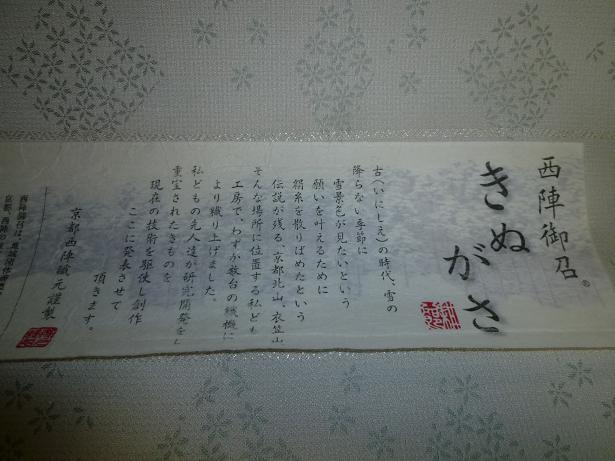 西陣御召®
きぬがさ
古(いにしえ)の時代、雪の
降らない季節に
雪景色が見たいという
願いを叶えるために
絹糸を散りばめたという
伝説が残る、京都北山、衣笠山
そんな場所に位置する私ども
工房で、わずか数台の織機に
より織り上げました。
私どもの先人達が研究開発をし
重宝されたきものを
現在の技術を駆使し創作
ここに発表させて
頂きます。
京都西陣織元謹製